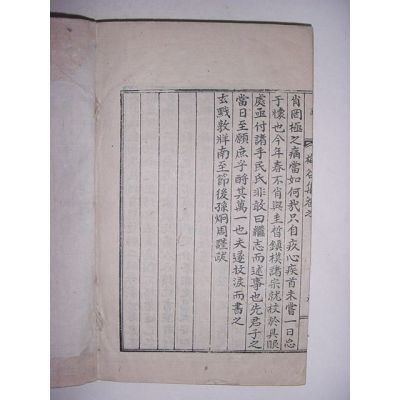 肖罔極之痛當如何哉只自疚心疾首未嘗一日忘
于懷也今年春不肖與圭晳鎭模諸宗就校於具眼
處亟付諸手民氏非敢曰繼志而述事也先君子之
當日至願庶乎酧其萬一也夫遂抆淚而書之
玄黓敦牂南至節後孫炯周謹跋
谷集卷之